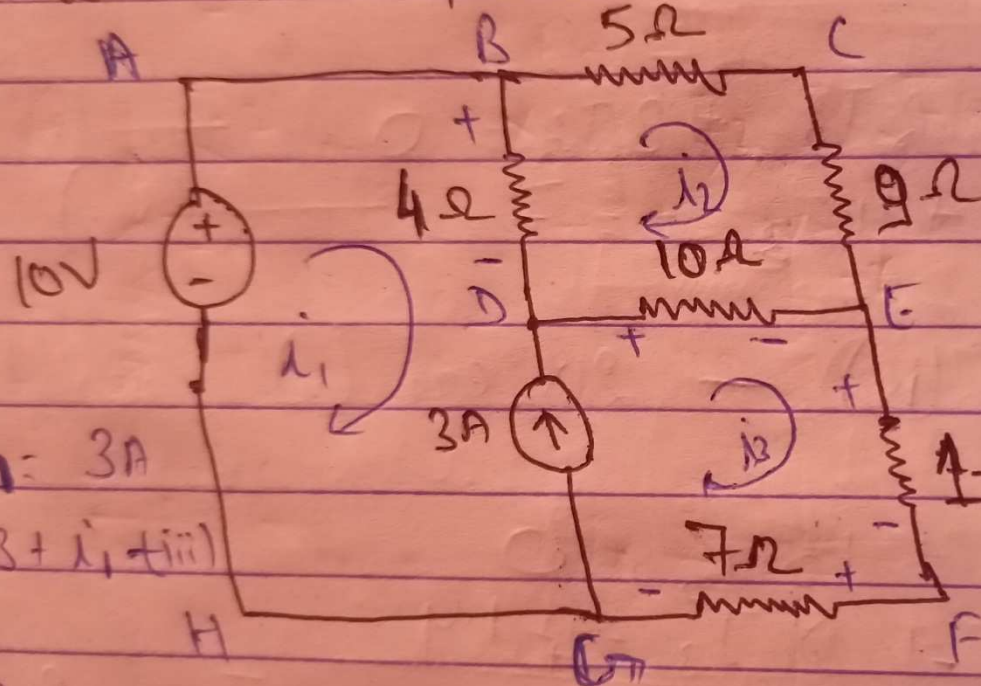 A B 5Ω C
+
4Ω i2 9Ω
+
10V - - 10Ω
D E
+ -
i1 3A i3 +
: 3A
3 + i1 +iii) -
7Ω
- +
H G F